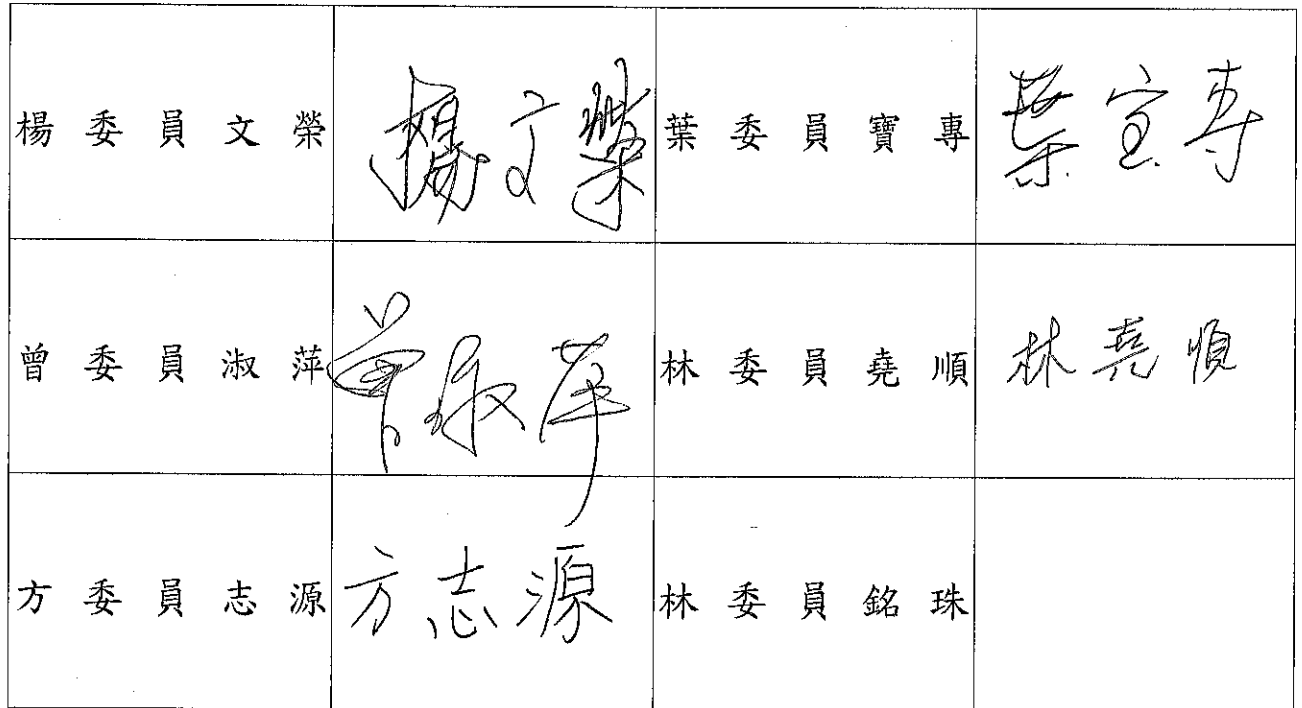 楊委員文榮 楊文榮 葉委員寶專 葉宝專
曾委員淑萍 曾淑萍 林委員堯順 林堯順
方委員志源 方志源 林委員銘珠